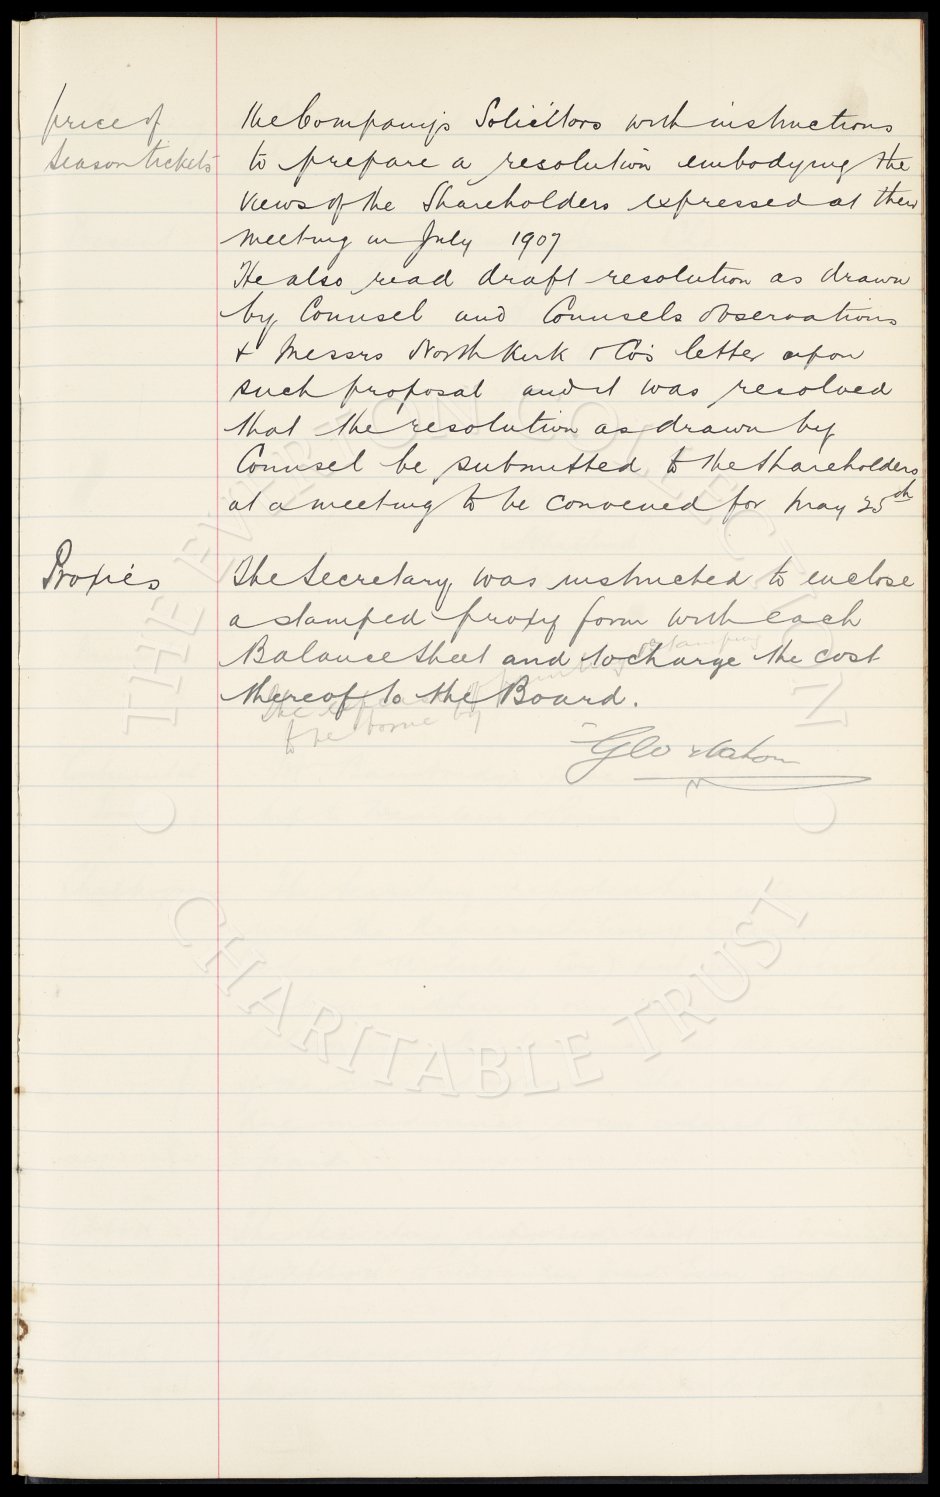 price of
season tickets
the Company's Solicitors with instructions
to prepare a resolution embodying the
views of the Shareholders expressed at their
meeting in July 1907
He also read draft resolution as drawn
by Counsel and Counsels observations
& Messrs North Kirk & Co's letter upon
such proposal and it was resolved
that the resolution as drawn by
Counsel be submitted to the Shareholders
at a meeting to be convened for May 25th
Proxies
The Secretary was instructed to enclose
a stamped proxy form with each
Balance Sheet and to charge the cost
thereof to the Board.
to be borne by
Geo Mahon
THE EVERTON COLLECTION
CHARITABLE TRUST